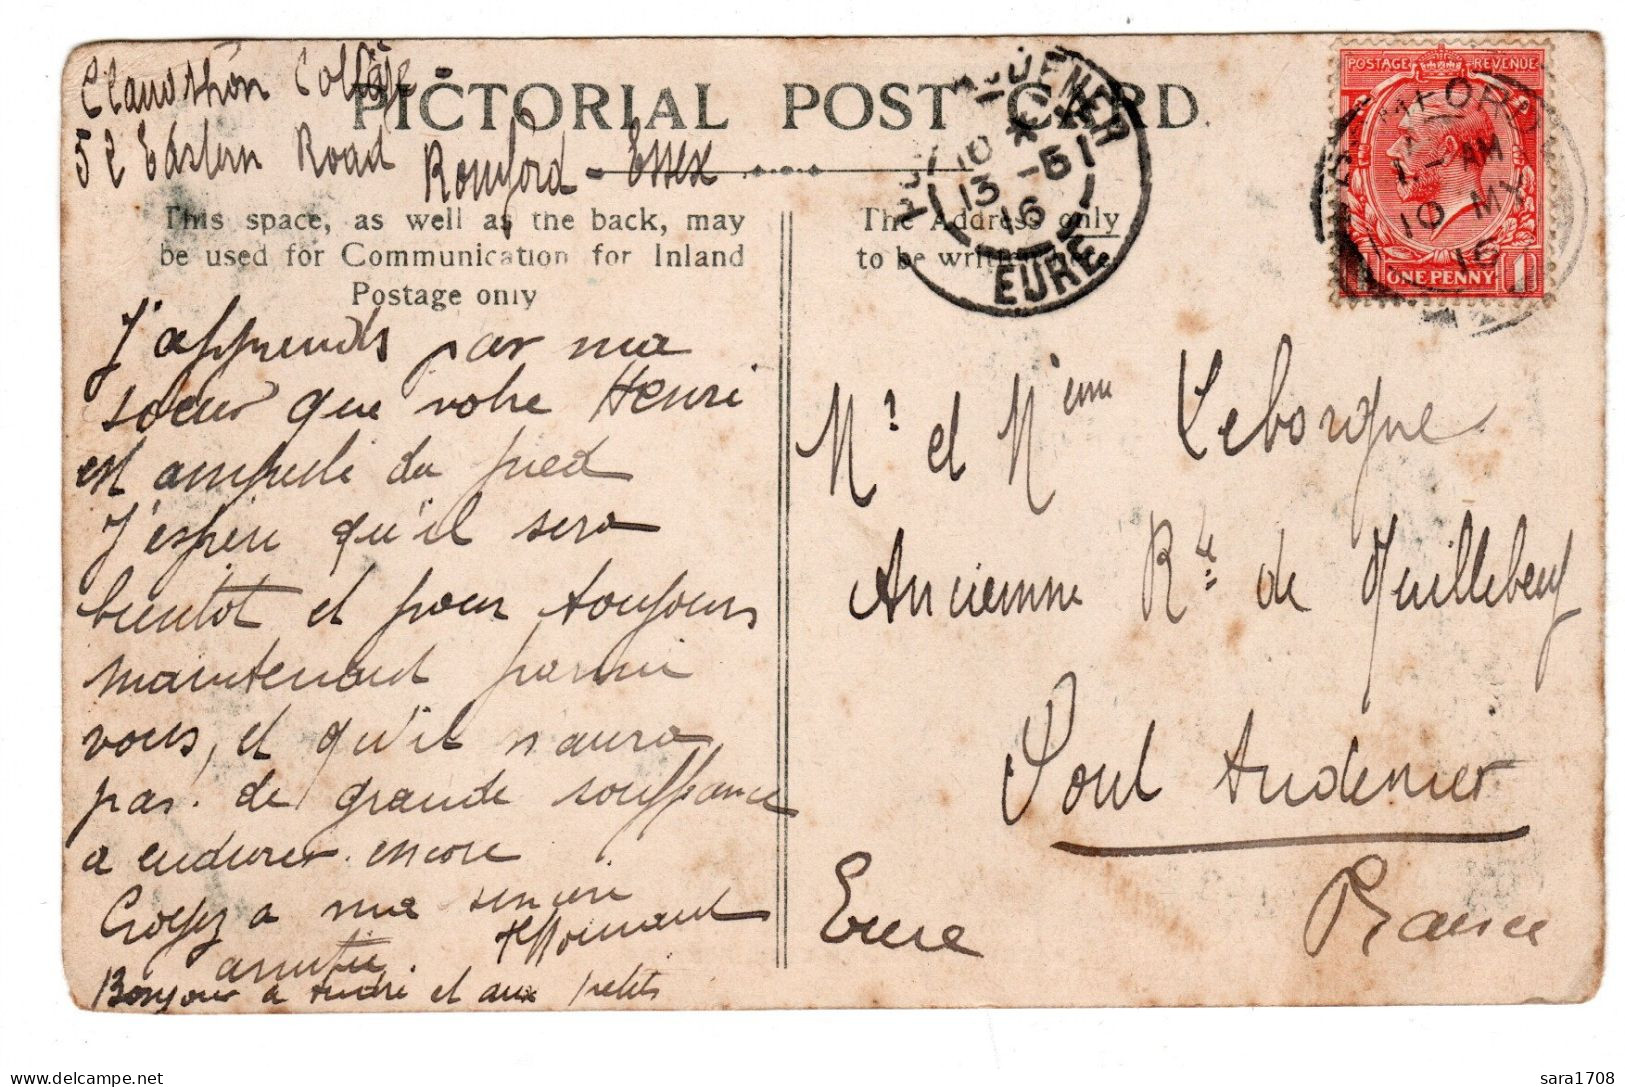 52 Eastern Road Romford - Essex
PICTORIAL POST CARD.
This space, as well as the back, may
be used for Communication for Inland
Postage only
The Address only
to be written here.
J'apprends par ma
soeur que votre Henri
est amputé du pied
J'espère qu'il sera
bientôt et pour toujours
maintenant parmi
vous, et qu'il n'aura
pas de grande souffrance
a endurer encore
Croyez a ma sincère
amitié
Bonjour a André et aux petits
EURE
10
13 -5
16
POSTAGE REVENUE
AM
10 MY
16
ONE PENNY 1
Mr et Mme Leborgne
Ancienne Rte de Quillebeuf
Pont Audemer
Eure
France
sara1708